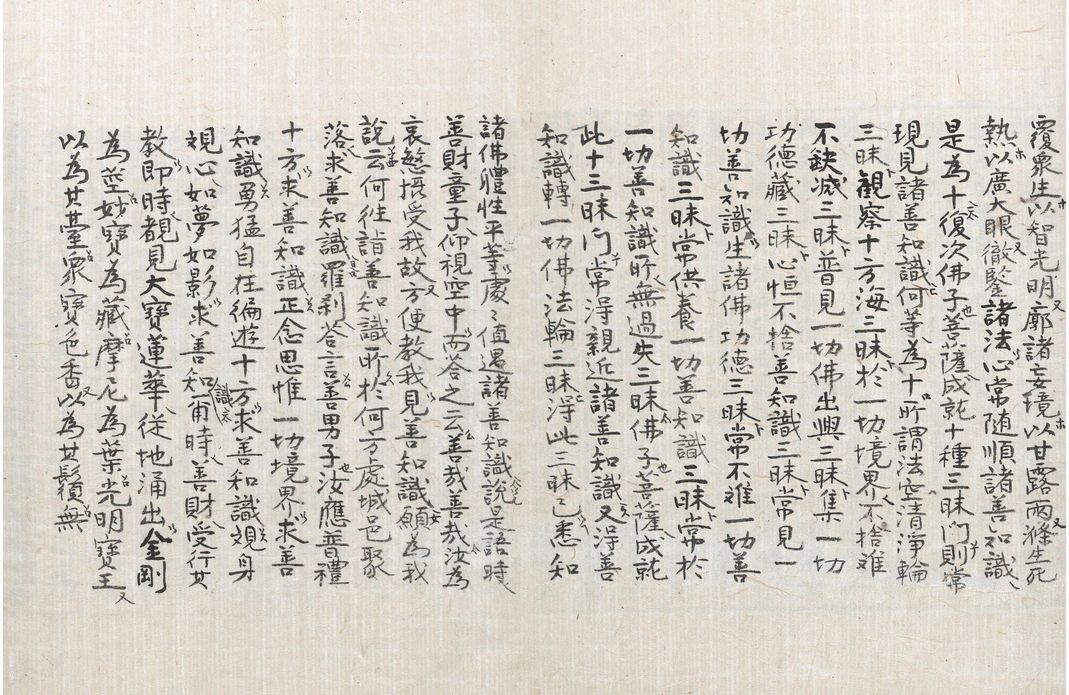 覆衆生以智光明廓諸妄境以甘露雨滌生死
熱以廣大眼徹鑒諸法心常随順諸善知識
是為十復次佛子菩薩成就十種三昧門則常
現見諸善知識何等為十所謂法空清淨輪
三昧觀察十方海三昧於一切境界不捨離
不缺減三昧普見一切佛出興三昧集一切
功德藏三昧心恒不捨善知識三昧常見一
切善知識生諸佛功德三昧常不離一切善
知識三昧常供養一切善知識三昧常於
一切善知識所無過失三昧佛子菩薩成就
此十三昧门常得親近諸善知識又得善
知識轉一切佛法輪三昧得此三昧已悉知
諸佛體性平等處〻值遇諸善知識說是語時
善財童子仰視空中而答之云善哉善哉汝為
哀愍摂受我故方便教我見善知識願為我
說云何往詣善知識所於何方處城邑聚
落求善知識羅刹答言善男子汝應普禮
十方求善知識正念思惟一切境界求善
知識勇猛自在徧遊十方求善知識觀身
觀心如夢如影求善知識尒時善財受行其
教即時覩見大寶蓮華從地涌出金剛
為莖妙寶為藏摩尼為葉光明寶王
以為其臺衆寶色香以為其鬚無